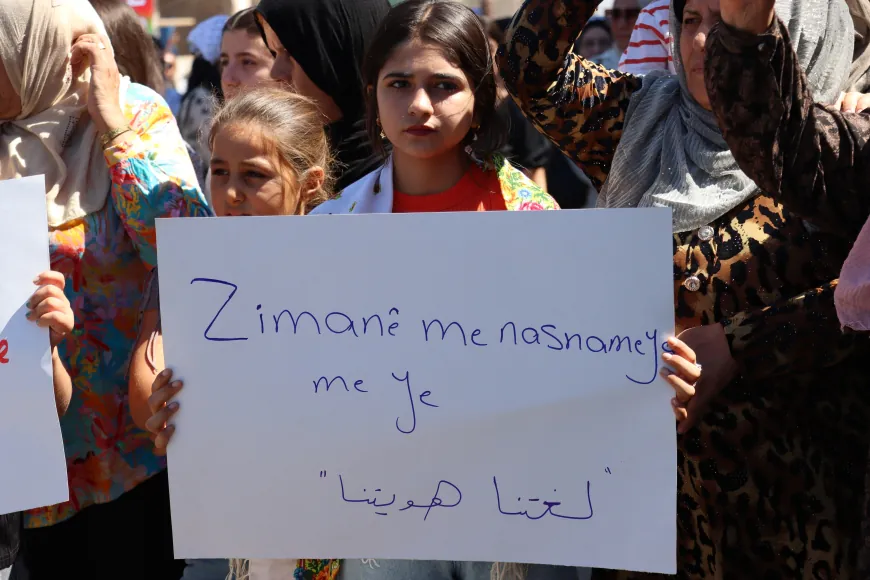 Zimanê me nasnameya
me ye
"لغتنا هويتنا"